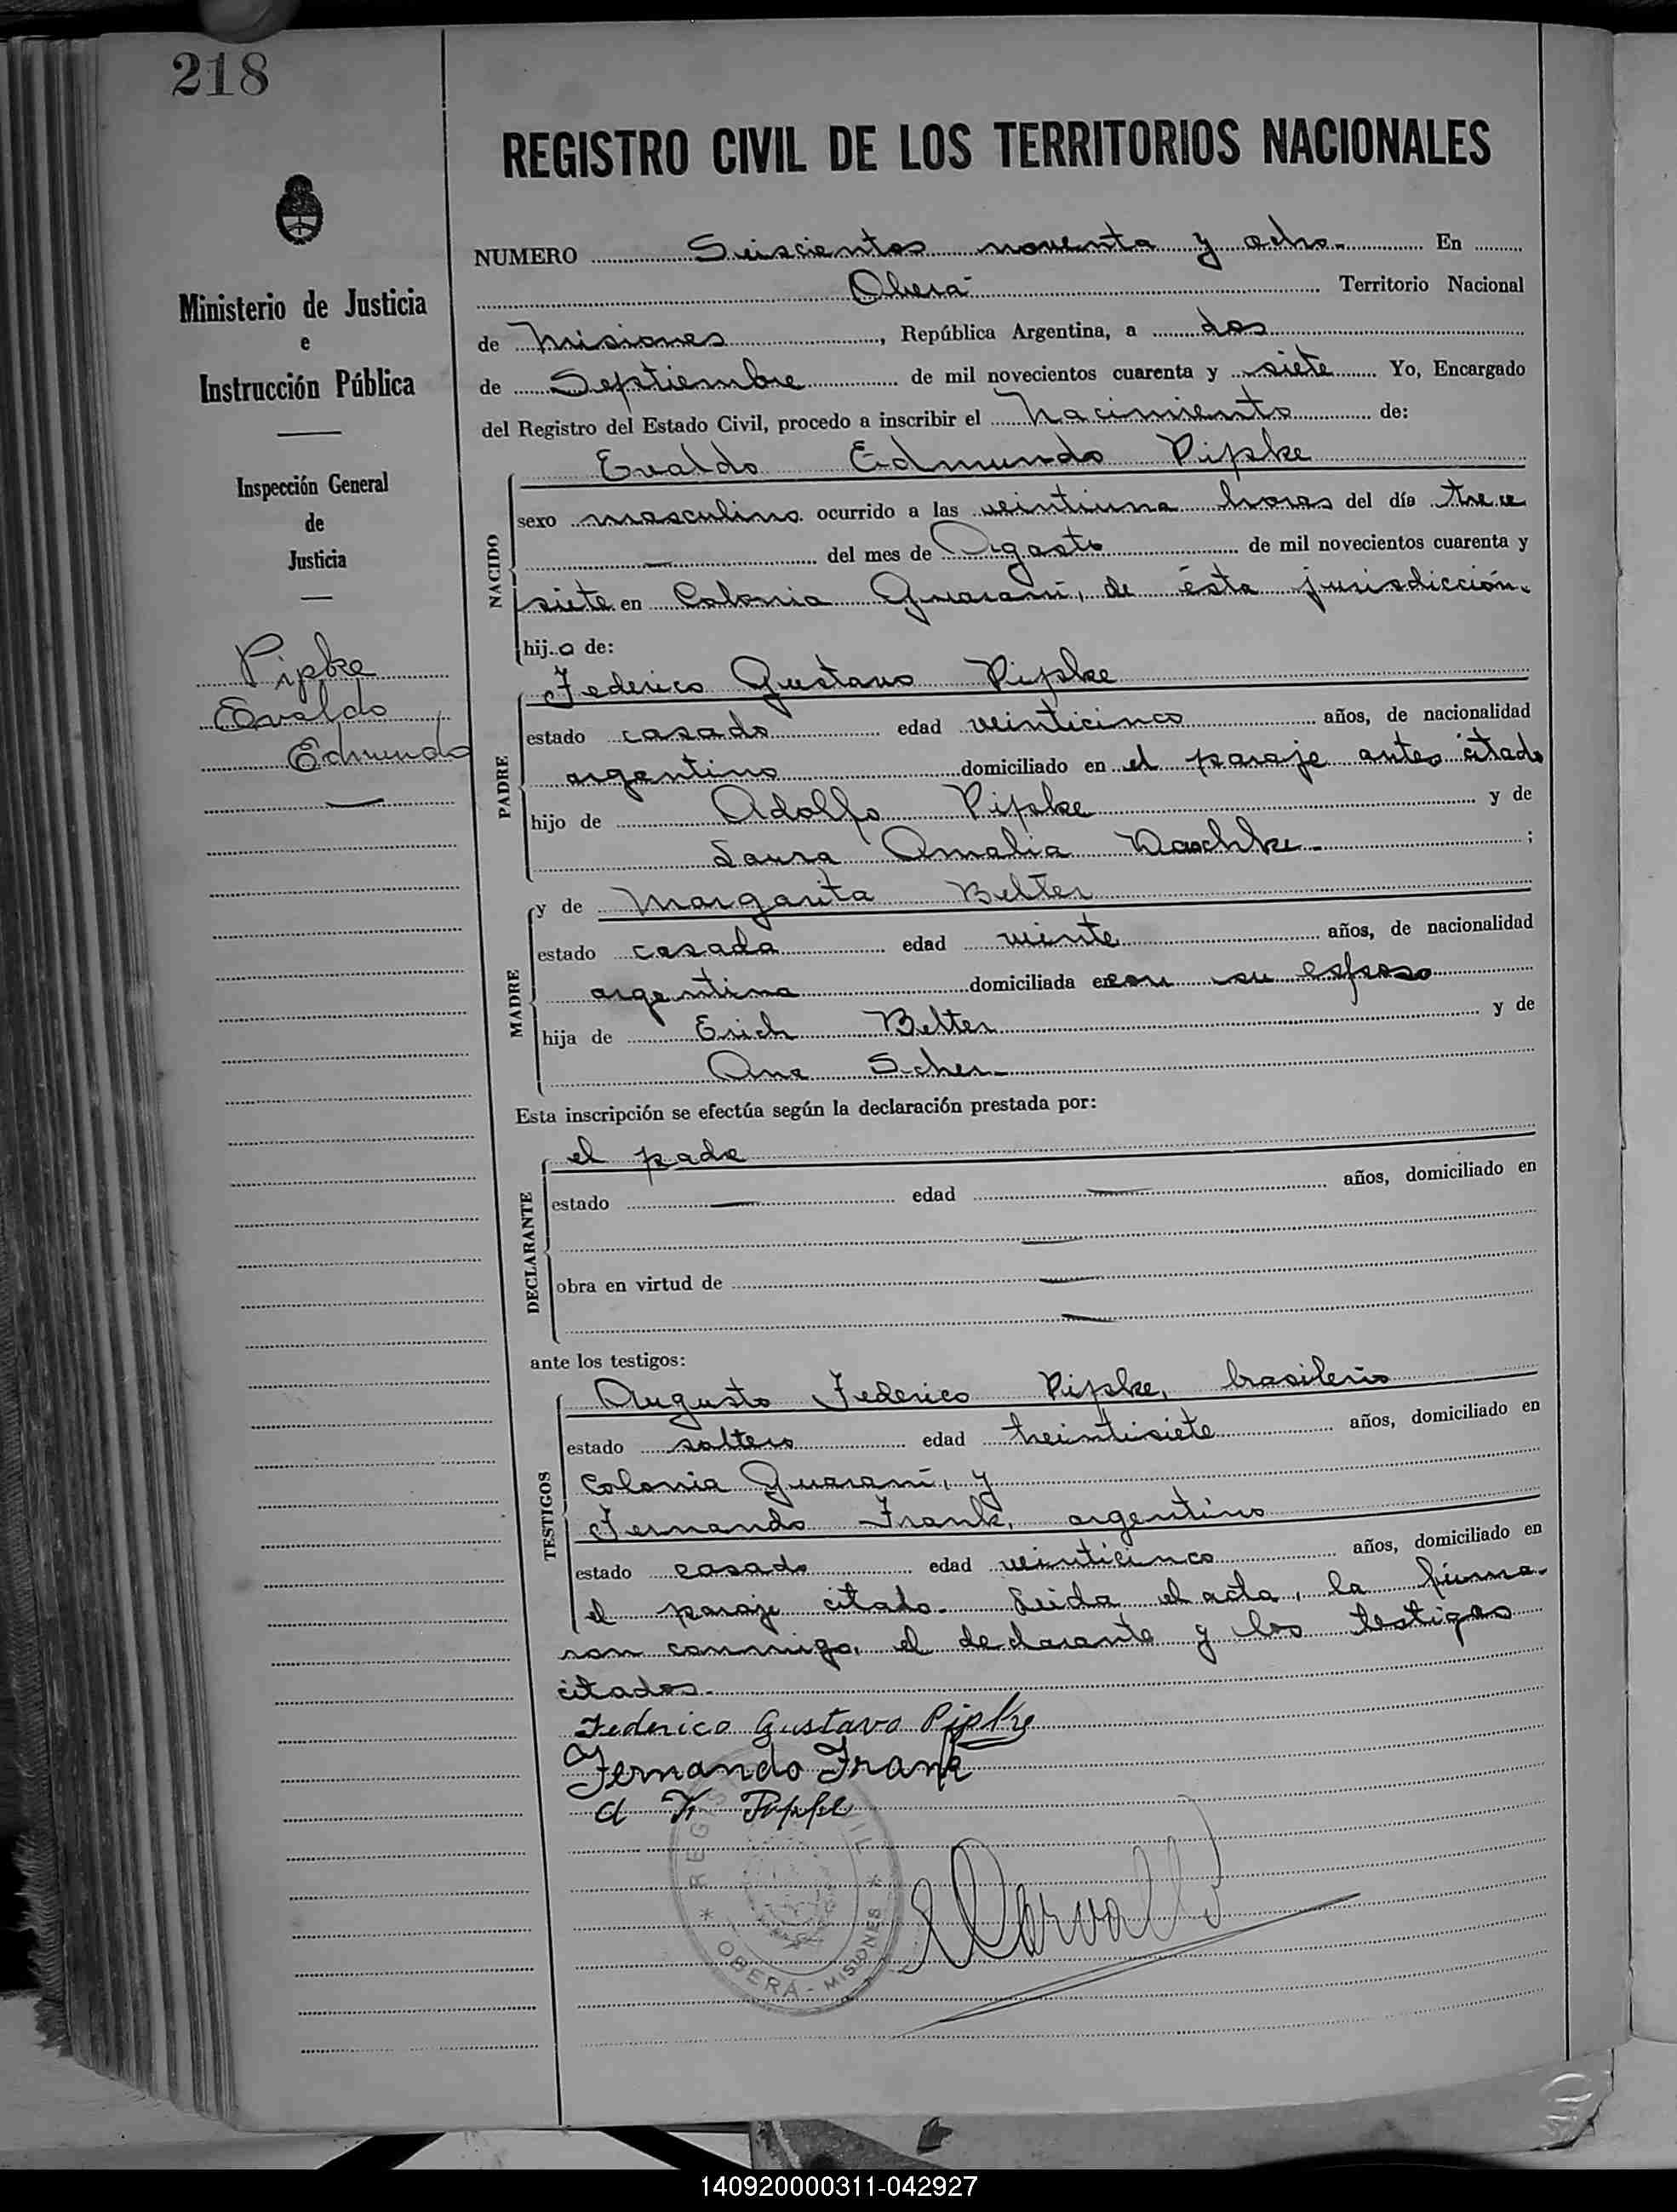 218
REGISTRO CIVIL DE LOS TERRITORIOS NACIONALES
Ministerio de Justicia
e
Instrucción Pública
Inspección General
de
Justicia
Pipke
Evaldo
Edmundo
NUMERO Seiscientos noventa y ocho.- En
Oberá Territorio Nacional
de Misiones, República Argentina, a dos
de Septiembre de mil novecientos cuarenta y siete Yo, Encargado
del Registro del Estado Civil, procedo a inscribir el Nacimiento de:
NACIDO
Evaldo Edmundo Pipke
sexo masculino. ocurrido a las veintiuna horas del día trece
— del mes de Agosto de mil novecientos cuarenta y
siete en Colonia Guaraní, de ésta jurisdicción.
hijo de:
PADRE
Federico Gustavo Pipke
estado casado edad veinticinco años, de nacionalidad
argentino domiciliado en el paraje antes citado
hijo de Adolfo Pipke y de
Laura Amalia Daschke- ;
MADRE
y de Margarita Belter
estado casada edad veinte años, de nacionalidad
argentina domiciliada en con su esposo
hija de Erich Belter y de
Ana Scher-
Esta inscripción se efectúa según la declaración prestada por:
DECLARANTE
el padre
estado — edad — años, domiciliado en
—
obra en virtud de —
—
ante los testigos:
TESTIGOS
Augusto Federico Pipke, brasileño
estado soltero edad treintisiete años, domiciliado en
Colonia Guaraní, y
Fernando Frank, argentino
estado casado edad veinticinco años, domiciliado en
el paraje citado. Leida el acta, la firma-
ron conmigo, el declarante y los testigos
citados.-
Federico Gustavo Pipke
Fernando Frank
REGIS CIVIL
* OBERÁ - MISIONES *
140920000311-042927